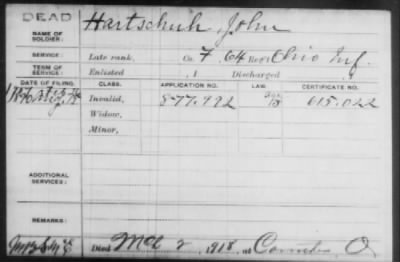 DEAD
NAME OF SOLDIER: Hartschuh, John
SERVICE: Late rank, Co. F, 64 Reg't Ohio Inf.
TERM OF SERVICE: Enlisted , 1 Discharged , 1
DATE OF FILING. CLASS. APPLICATION NO. LAW. CERTIFICATE NO.
Invalid, 877.992 615.022
Widow,
Minor,
ADDITIONAL SERVICES:
REMARKS:
Died 2, 1918, at O.